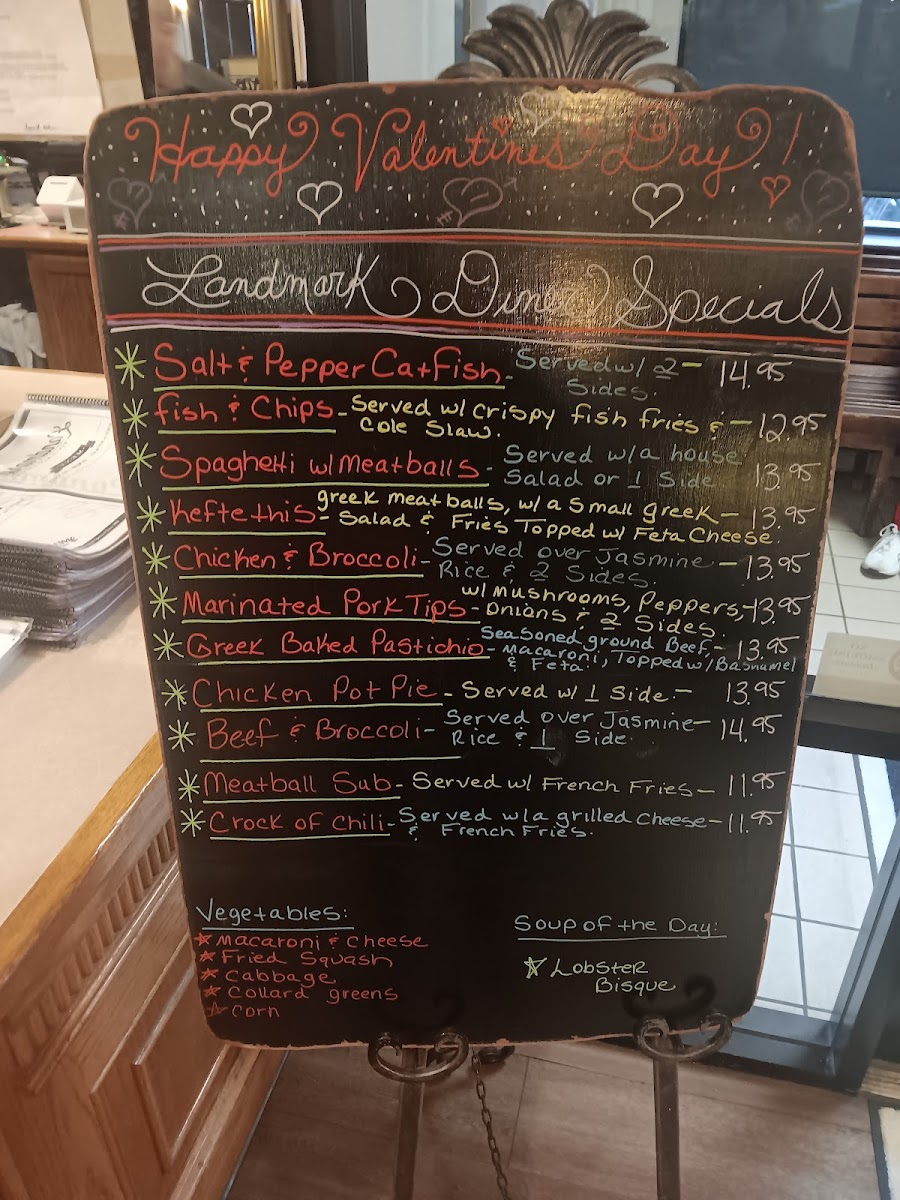 Happy Valentines Day!
Landmark Diner Specials
Salt & Pepper Catfish - Served w/ 2 - 14.95
Sides.
fish & Chips - Served w/ crispy fish fries & - 12.95
Cole Slaw.
Spaghetti w/ Meatballs - Served w/a house
Salad or 1 Side 13.95
Keftethis - greek meatballs, w/ a Small greek - 13.95
Salad & Fries Topped w/ Feta Cheese.
Chicken & Broccoli - Served over Jasmine - 13.95
Rice & 2 Sides.
Marinated Pork Tips - w/ Mushrooms, Peppers, - 13.95
Onions & 2 Sides.
Greek Baked Pastichio - Seasoned ground Beef, - 13.95
macaroni, Topped w/ Bashamel
& Feta
Chicken Pot Pie - Served w/ 1 Side. - 13.95
Beef & Broccoli - Served over Jasmine - 14.95
Rice & 1 Side.
Meatball Sub - Served w/ French Fries - 11.95
Crock of Chili - Served w/a grilled Cheese - 11.95
& French Fries.
Vegetables:
Macaroni & Cheese
Fried Squash
Cabbage
Collard greens
Corn
Soup of the Day:
Lobster
Bisque